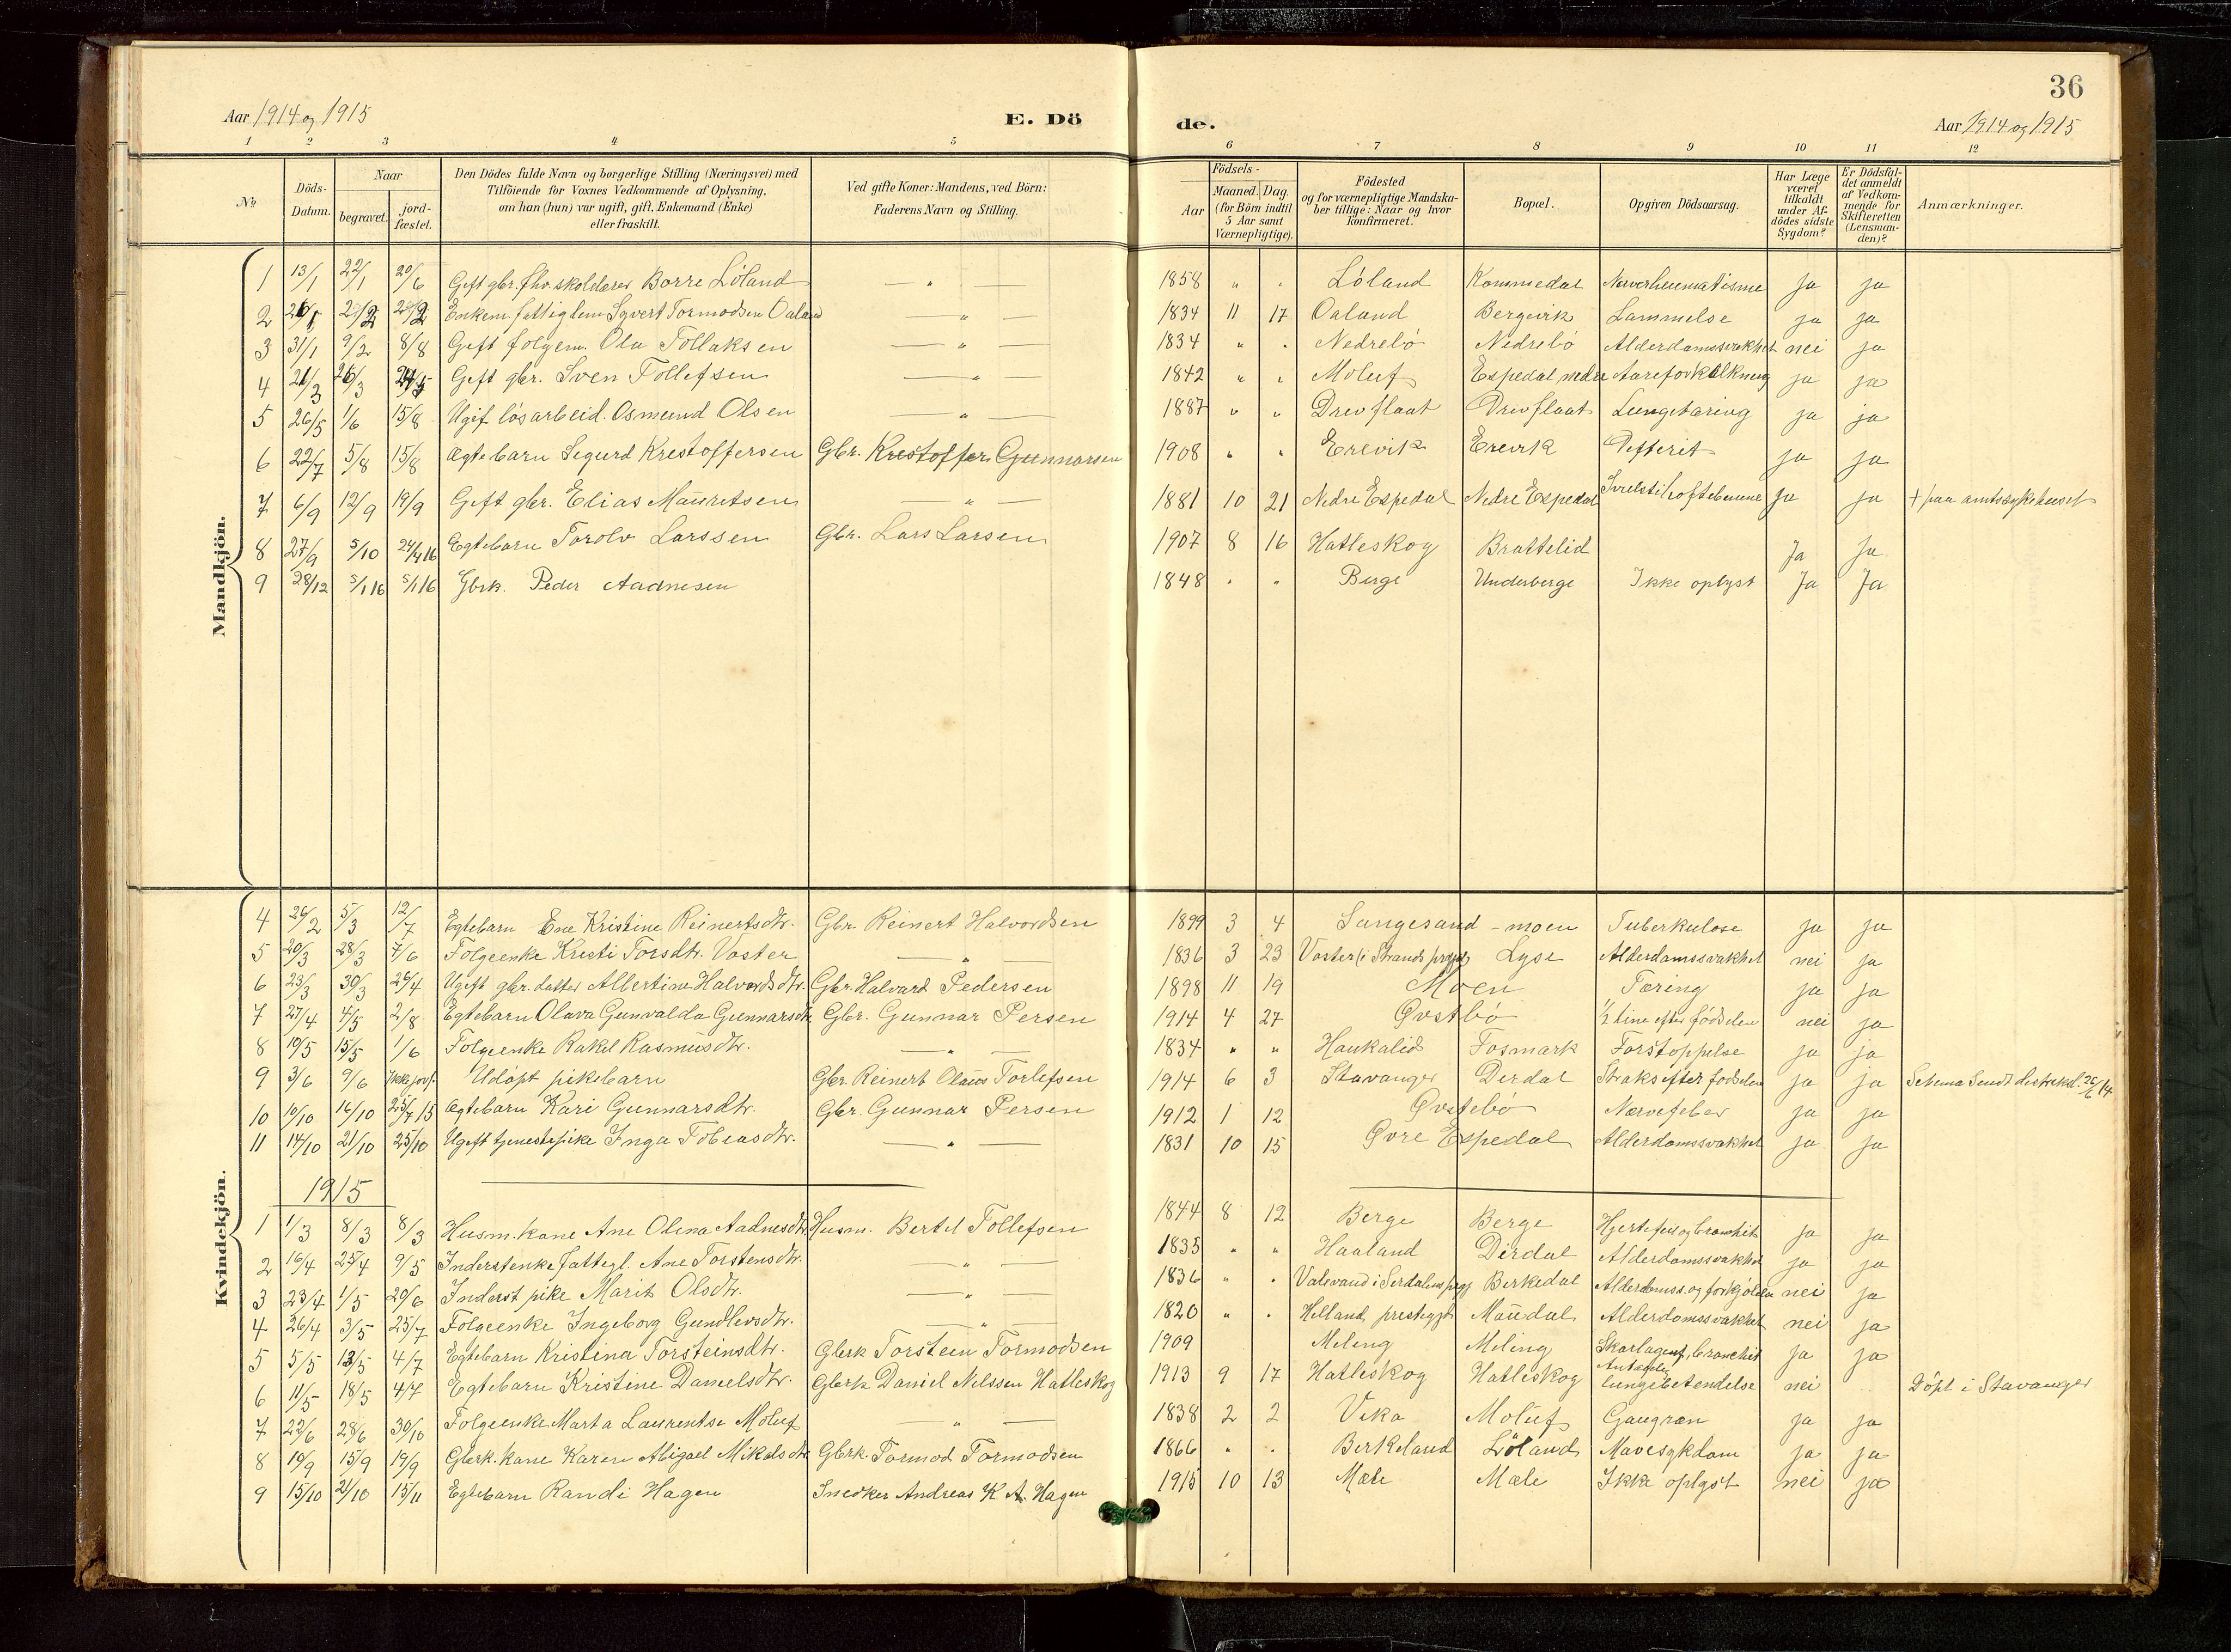 36
Aar 1914 og 1915 E. Dö de. Aar 1914 og 1915
1 2 3 4 5 6 7 8 9 10 11 12
No Döds-Datum. Naar begravet. jordfæstet. Den Dödes fulde Navn og borgerlige Stilling (Næringsvei) med Tilföiende for Voxnes Vedkommende af Oplysning, om han (hun) var ugift, gift, Enkemand (Enke) eller fraskilt. Ved gifte Koner: Mandens, ved Börn: Faderens Navn og Stilling. Födsels- Aar Maaned. Dag. (for Börn indtil 5 Aar samt Værnepligtige). Födested og for værnepligtige Mandskaber tillige: Naar og hvor konfirmeret. Bopæl. Opgiven Dödsaarsag. Har Læge været tilkaldt under Afdödes sidste Sygdom? Er Dödsfaldet anmeldt af Vedkommende for Skifteretten (Lensmanden)? Anmærkninger.
Mandkjön.
1 13/1 22/1 20/6 Gift gbr. fhv. skolelærer Borre Löland — " — 1858 " " Löland Kommedal Nerverheumatisme ja ja
2 26/1 2/2 Enkem. fattiglem Syvert Tormodsen Oaland — " — 1834 11 17 Oaland Bergevik Lammelse ja ja
3 31/1 9/2 8/8 Gift folgem. Ola Tollaksen — " — 1834 " " Nedrebö Nedrebö Alderdomssvakhet nei ja
4 21/3 26/3 24/5 Gift gbr. Sven Tollefsen — " — 1842 " " Moluf Espedal nedre Aareforkalkning ja ja
5 26/5 1/6 15/8 Ugift lösarbeid. Osmund Olsen — " — 1887 " " Drevflaat Drevflaat Lungetæring ja ja
6 22/7 5/8 15/8 Ægtebarn Sigurd Kristoffersen Gbr. Kristoffer Gunnarsen 1908 " " Erevik Erevik Difterit ja ja
7 6/9 12/9 19/9 Gift gbr. Elias Mauritsen — " — 1881 10 21 Nedre Espedal Nedre Espedal Svulst i hoftebenene ja ja + paa amtssykehuset
8 27/9 5/10 24/4 16 Egtebarn Torolv Larssen Gbr. Lars Larsen 1907 8 16 Hatleskog Brattelid Ja Ja
9 28/12 5/1 16 5/1 16 Gbrk. Peder Aadnesen 1848 " " Berge Underberge Ikke oplyst Ja Ja
Kvindekjön.
4 24/2 5/3 12/7 Egtebarn Ene Kristine Reinertsdtr. Gbr. Reinert Halvordsen 1899 3 4 Sangesand - moen Tuberkulose ja ja
5 20/3 28/3 7/6 Folgeenke Kristi Torsdtr. Voster — " — 1836 3 23 Voster (i Strands prgjld) Lyse Alderdomssvakhet nei ja
6 23/3 30/3 26/4 Ugift gbr. datter Albertine Halvordsdtr. Gbr. Halvard Pedersen 1898 11 19 Moen Tæring ja ja
7 27/4 4/5 2/8 Egtebarn Olava Gunvalda Gunnarsdtr Gbr. Gunnar Persen 1914 4 27 Øvstbö ½ time efter födselen nei ja
8 10/5 15/5 1/6 Folgeenke Rakel Rasmusdtr. — " — 1834 " " Haukalid Fosmark Forstoppelse ja ja
9 3/6 9/6 Ikke jord. Udöpt pikebarn Gbr. Reinert Olaus Torlefsen 1914 6 3 Stavanger Derdal Straks efter födselen ja ja Schema sendt distriktsl. 26/6 14
10 10/10 16/10 25/7 15 Ægtebarn Kari Gunnarsdtr. Gbr. Gunnar Persen 1912 1 12 Øvstebö Nervefeber ja ja
11 14/10 21/10 25/10 Ugift tjenestepike Inga Tobiasdtr. — " — 1831 10 15 Øvre Espedal Alderdomssvakhet ja ja
1915
1 1/3 8/3 8/3 Husm. kone Ane Olena Aadnesdtr. Husm. Bertel Tollefsen 1844 8 12 Berge Berge Hjertefeil og bronkit ja ja
2 16/4 25/4 9/5 Inderstenke fattigl. Ane Torstensdtr. — " — 1835 " " Haaland Dirdal Alderdomssvakhet ja ja
3 23/4 1/5 20/6 Inderst pike Marit Olsdtr. — " — 1836 " " Valevand i Serdalens prgj Berkedal Alderdomss. og forkjölelse nei ja
4 26/4 3/5 25/7 Folgeenke Ingeborg Gundlevsdtr. — " — 1820 " " Helland, prestegjd Maudal Alderdomssvakhet nei ja
5 5/5 13/5 4/7 Egtebarn Kristina Torsteinsdtr. Gbrk Torstein Tormodsen 1909 Meling Meling Skarlagensf, bronchit ja ja
6 11/5 18/5 4/7 Egtebarn Kristine Danielsdtr. Gbrk Daniel Nilssen Hatleskog 1913 9 17 Hatleskog Hatleskog Antagelig lungebetendelse nei Döpt i Stavanger
7 22/6 28/6 30/10 Folgeenke Marta Laurentse Moluf — " — 1838 2 2 Vika Moluf Gangræn ja ja
8 10/9 15/9 19/9 Gbrk. kone Karen Abigael Mikalsdtr. Gbrk. Tormod Tormodsen 1866 " " Berkeland Löland Mavesykdom ja ja
9 15/10 21/10 15/11 Egtebarn Randi Hagen Snedker Andreas K. A. Hagen 1915 10 13 Mæle Mæle Ikke oplyst nei ja